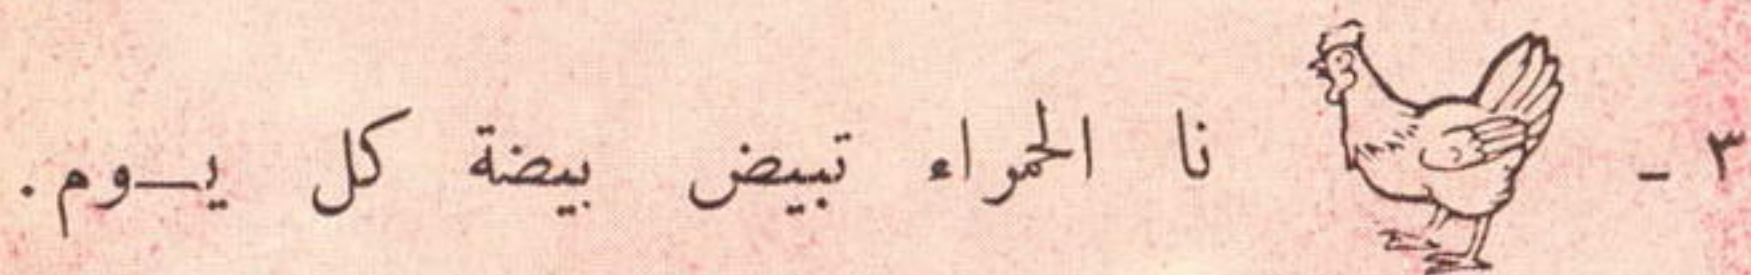 ٣ - نا الحمراء تبيض بيضة كل يـوم.